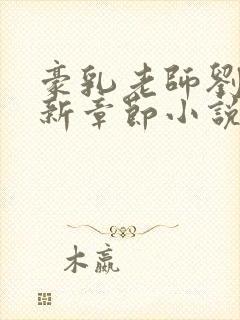 豪乳老師劉
新章節小説
木嬴